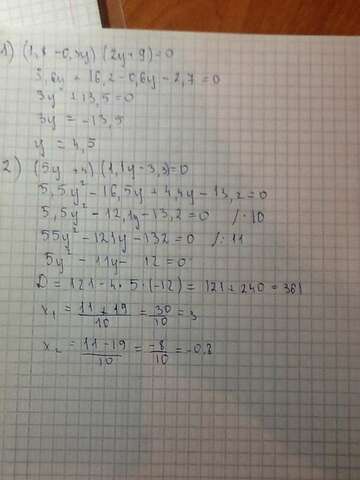 1) (1,8 - 0,3y) (2y + 9) = 0
3,6y + 16,2 - 0,6y - 2,7 = 0
3y + 13,5 = 0
3y = -13,5
y = 4,5
2) (5y + 4) (1,1y - 3,3) = 0
5,5y² - 16,5y + 4,4y - 13,2 = 0
5,5y² - 12,1y - 13,2 = 0 /·10
55y² - 121y - 132 = 0 /:11
5y² - 11y - 12 = 0
D = 121 - 4·5·(-12) = 121 + 240 = 361
x₁ = (11 + 19)/10 = 30/10 = 3
x₂ = (11 - 19)/10 = -8/10 = -0,8